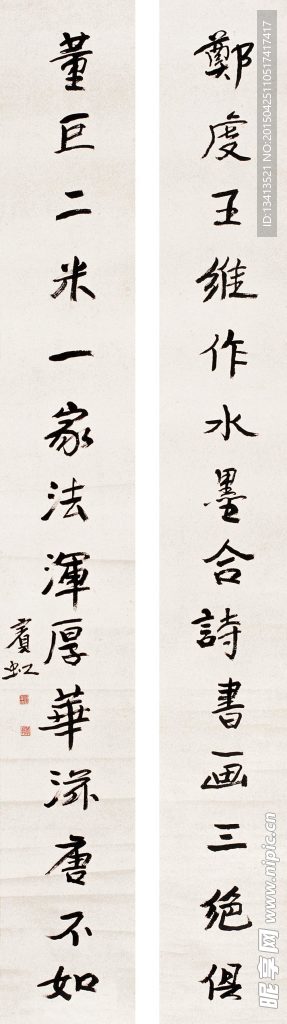 鄭虔王維作水墨合詩書画三絕俱
董巨二米一家法渾厚華滋唐不如
賓虹
ID:13413521 NO:20150425110517417417
昵享网 www.nipic.cn